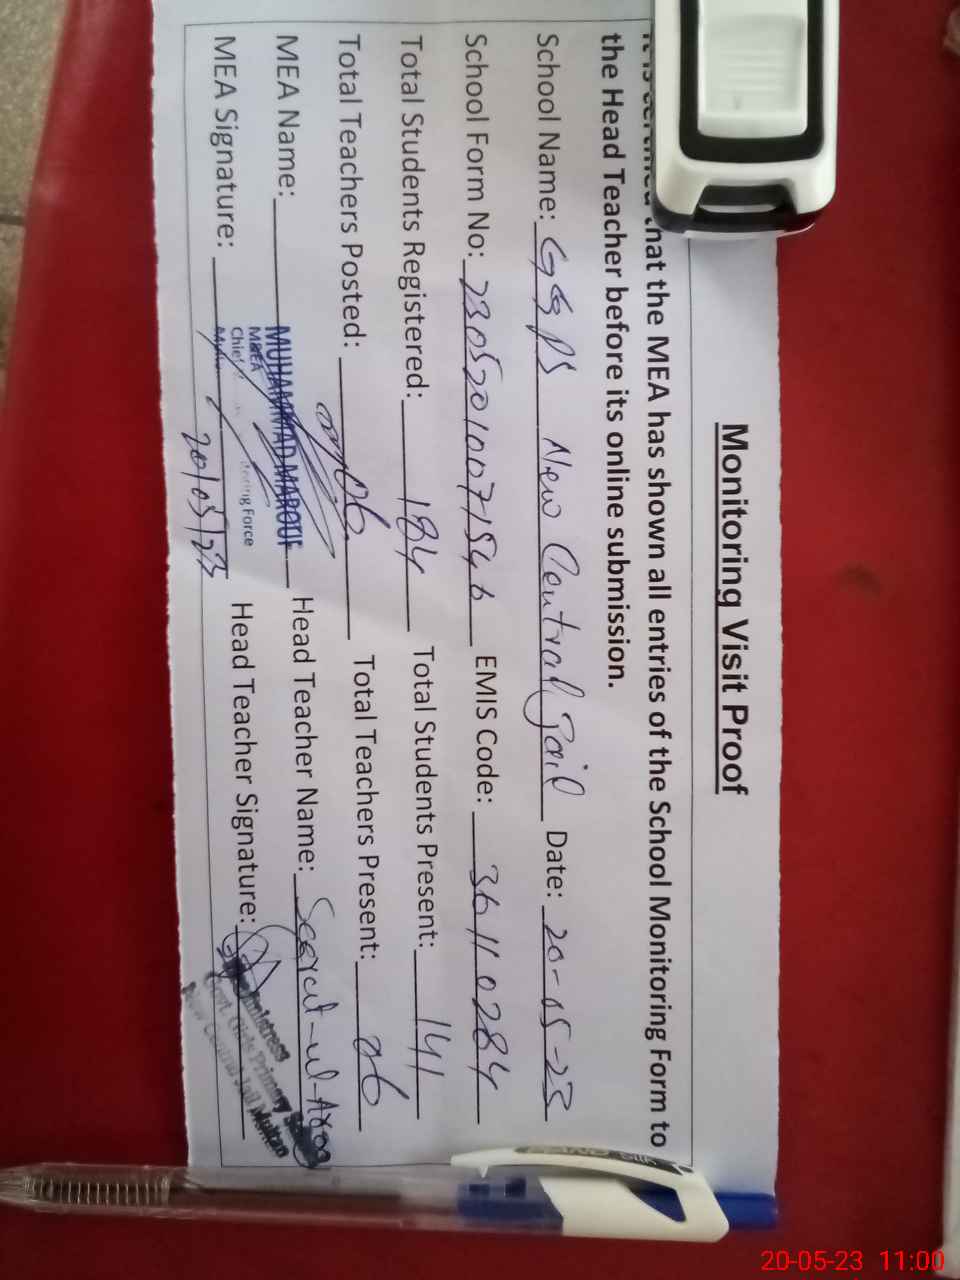 Monitoring Visit Proof
that the MEA has shown all entries of the School Monitoring Form to
the Head Teacher before its online submission.
School Name: GGPS New Central Jail Date: 20-05-23
School Form No: 2305201007154 EMIS Code: 36110284
Total Students Registered: 184 Total Students Present: 141
Total Teachers Posted: 06 Total Teachers Present: 06
MEA Name: MUHAMMAD MAROUF Head Teacher Name: Seerat-ul-
MEA Signature: 20/05/23 Head Teacher Signature:
MEA
Chief Monitoring Force
Headmistress
Govt. Girls Primary School
New Central Jail Multan
20-05-23 11:00